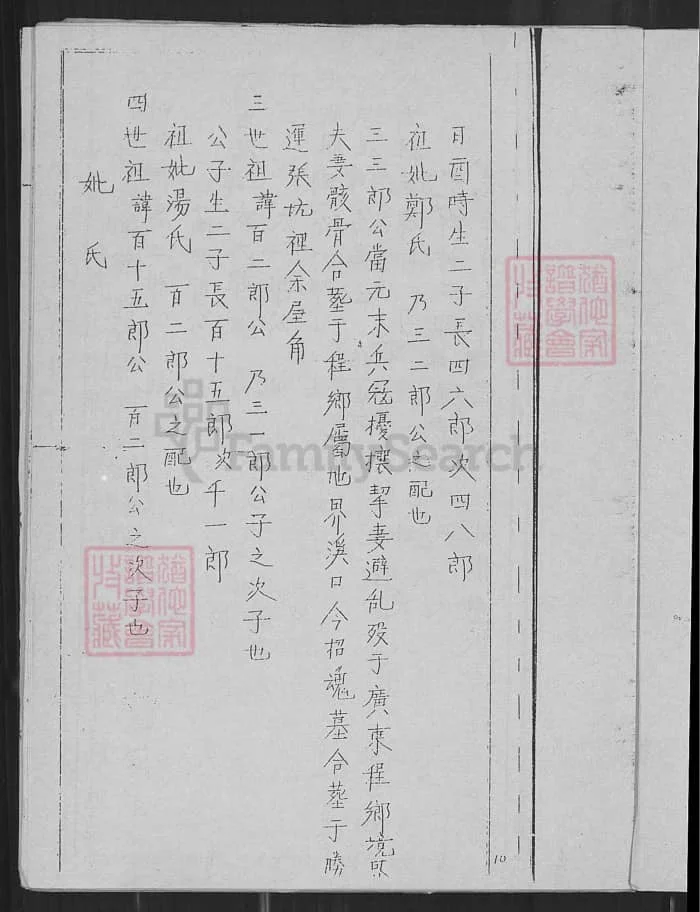 日酉時生二子長四六郎次四八郎
祖妣鄭氏 乃三二郎公之配也
三三郎公當元末兵冦擾攘挈妻避乱殁于廣東程鄉境
夫妻骸骨合塟于程鄉屬地界溪口今招魂墓合塟于勝
運張坑裡余屋角
三世祖諱百二郎公 乃三一郎公子之次子也
公子生二子長百十五郎次千一郎
祖妣湯氏 百二郎公之配也
四世祖諱百十五郎公 百二郎公之次子也
妣 氏
10
FamilySearch